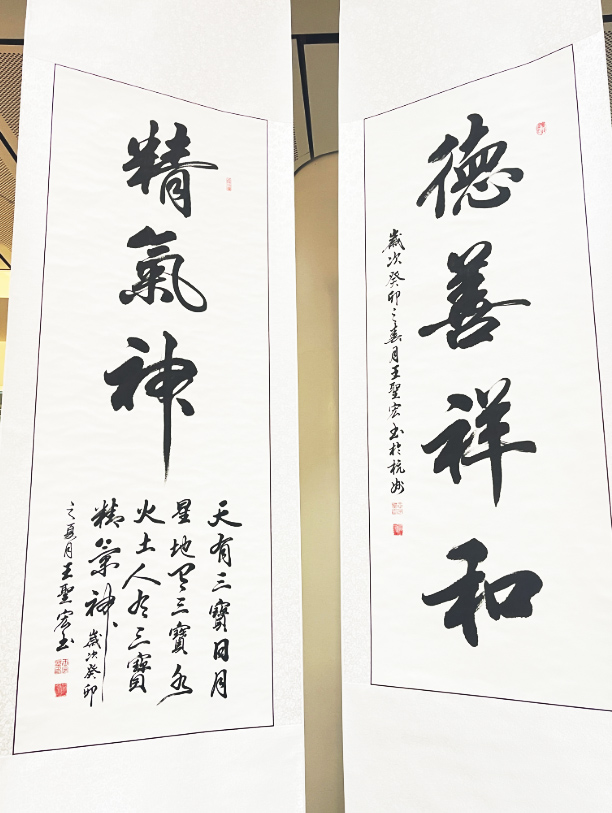 德善祥和
歲次癸卯之春月王聖宏書於杭州
精氣神
天有三寶日月
星地有三寶水
火土人有三寶
精氣神歲次癸卯
之夏月王聖宏書